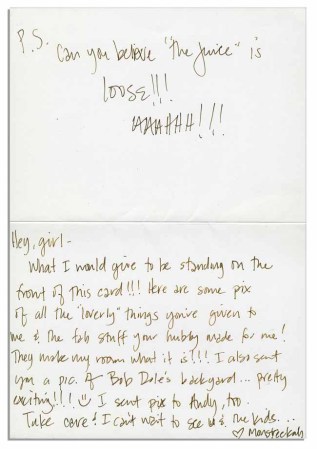 P.S.
Can you believe "the Juice" is
loose!!!
AAAHHH!!!
Hey, girl -
What I would give to be standing on the
front of this card!!! Here are some pix
of all the "loverly" things you've given to
me & the fab stuff your hubby made for me!
They make my room what it is!!! I also sent
you a pic. of Bob Dole's backyard... pretty
exciting!!! I sent pix to Andy, too.
Take care! I can't wait to see & the kids...
♡